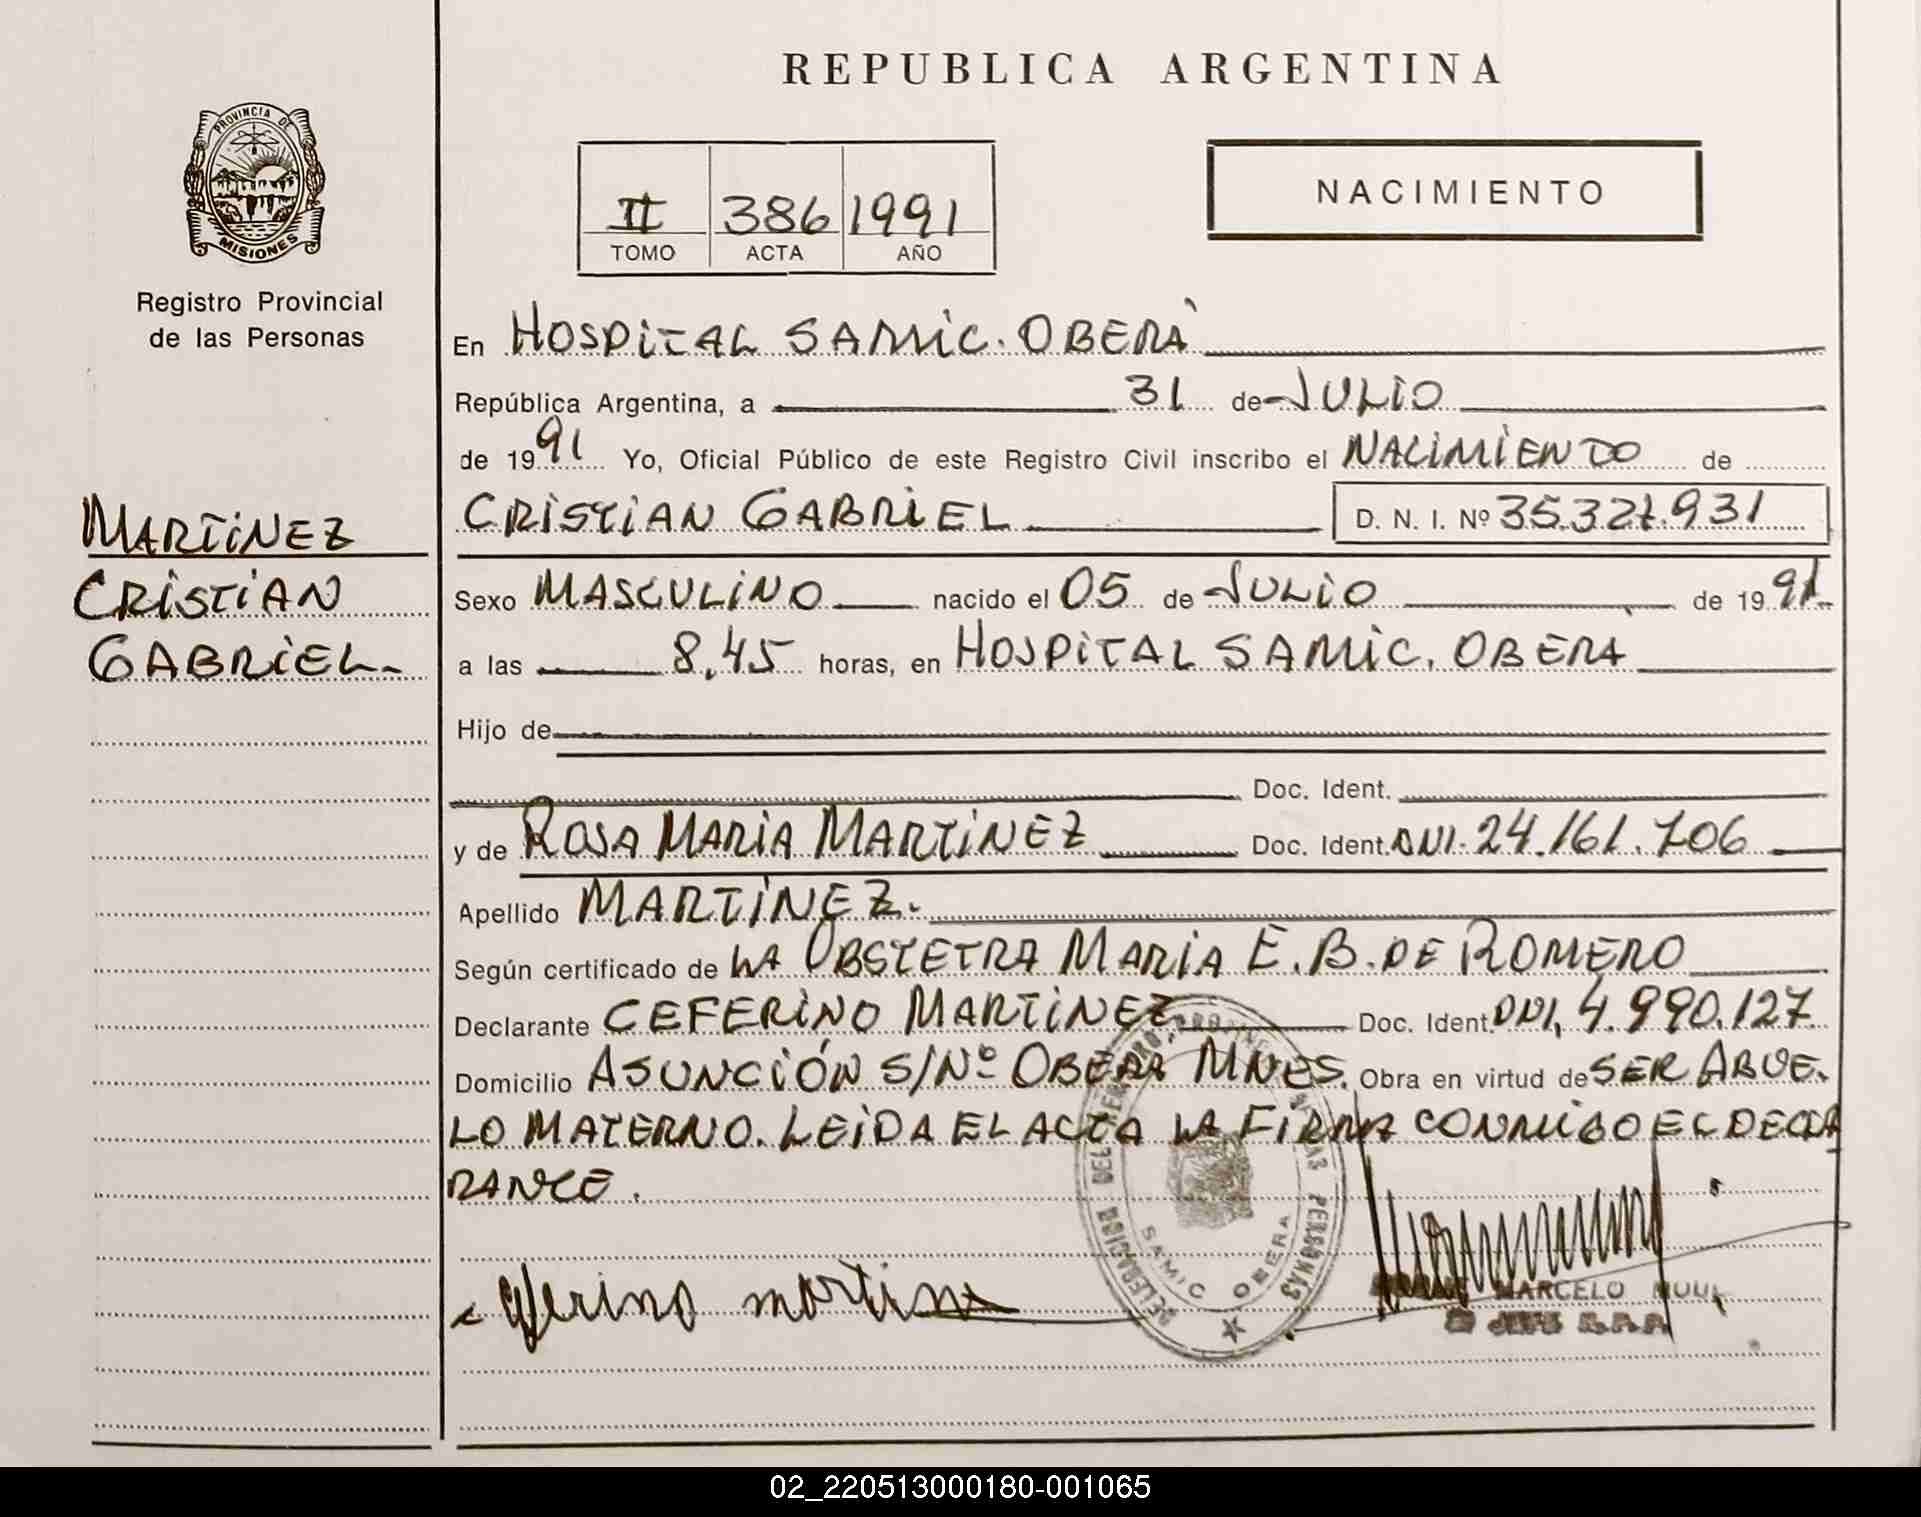 REPUBLICA ARGENTINA
PROVINCIA DE
MISIONES
Registro Provincial
de las Personas
II 386 1991
TOMO ACTA AÑO
NACIMIENTO
En HOSPITAL SAMIC. OBERÁ
República Argentina, a 31 de JULIO
de 1991 Yo, Oficial Público de este Registro Civil inscribo el NACIMIENTO de
CRISTIAN GABRIEL D. N. I. Nº 35.327.931
MARTINEZ
CRISTIAN
GABRIEL
Sexo MASCULINO nacido el 05 de JULIO de 1991
a las 8,45 horas, en HOSPITAL SAMIC. OBERA
Hijo de
Doc. Ident.
y de ROSA MARIA MARTINEZ Doc. Ident. DNI. 24.161.706
Apellido MARTINEZ.
Según certificado de LA OBSTETRA MARIA E. B. DE ROMERO
Declarante CEFERINO MARTINEZ Doc. Ident. DNI, 4.990.127
Domicilio ASUNCIÓN S/Nº OBERA MNES. Obra en virtud de SER ABUE-
LO MATERNO. LEIDA EL ACTA LA FIRMA CONMIGO EL DECLA
RANTE.
DELEGACION DEL REGISTRO PROVINCIAL DE LAS PERSONAS
SAMIC OBERA
ceferino martinez
MARCELO
02_220513000180-001065